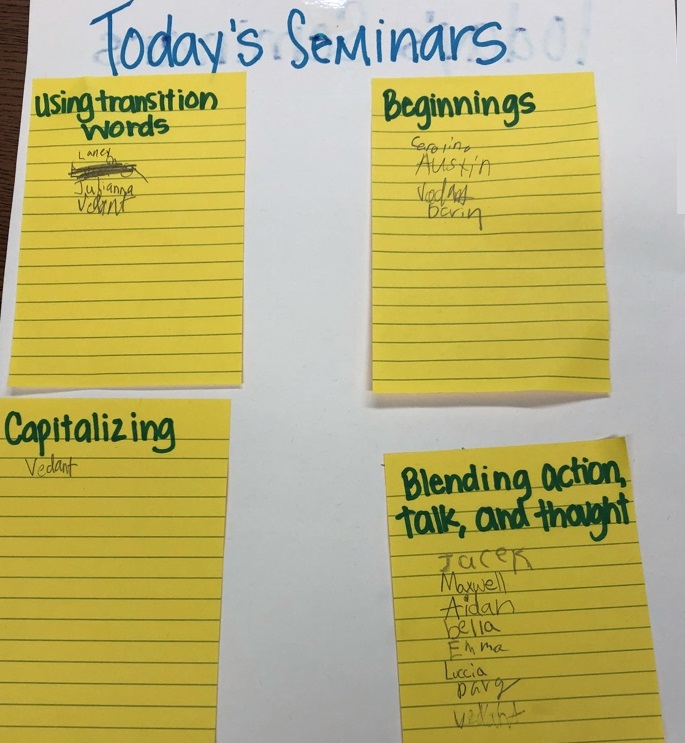 Today's Seminars
Using transition
words
Laney
Julianna
Vedant
Beginnings
Caroline
Austin
Vedant
Darin
Capitalizing
Vedant
Blending action,
talk, and thought
Jacek
Maxwell
Aidan
bella
Emma
Luccia
Vedant